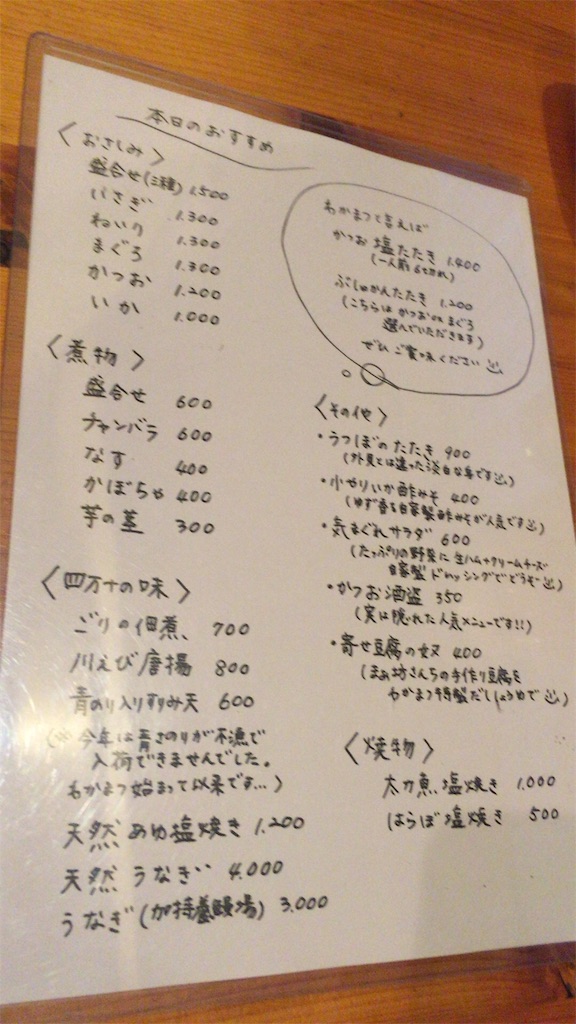 本日のおすすめ
〈おさしみ〉
盛合せ(三種) 1.500
いさぎ 1.300
ねいり 1.300
まぐろ 1.300
かつお 1.200
いか 1.000
〈煮物〉
盛合せ 600
チャンバラ 600
なす 400
かぼちゃ 400
芋の茎 300
〈四万十の味〉
ごりの佃煮、 700
川えび唐揚 800
青のり入りすりみ天 600
(※今年は青さのりが不漁で
入荷できませんでした。
わかまつ始まって以来です…)
天然あゆ塩焼き 1.200
天然うなぎ 4.000
うなぎ(加持養鰻場) 3.000
わかまつで言えば
かつお塩たたき 1.400
(一人前6切れ)
ぶしゅかんたたき 1.200
(こちらはかつおorまぐろ
選んでいただきます)
ぜひご賞味ください
〈その他〉
・うつぼのたたき 900
(外見とは違った淡白な身です)
・小やりいか酢みそ 400
(ゆず香る自家製酢みそが人気です)
・気まぐれサラダ 600
(たっぷりの野菜に生ハム+クリームチーズ
自家製ドレッシングでどうぞ)
・かつお酒盗 350
(実は隠れた人気メニューです!!)
・寄せ豆腐の奴 400
(まぁ坊さんちの手作り豆腐を
わかまつ特製だししょうゆで)
〈焼物〉
太刀魚塩焼き 1.000
はらぼ塩焼き 500